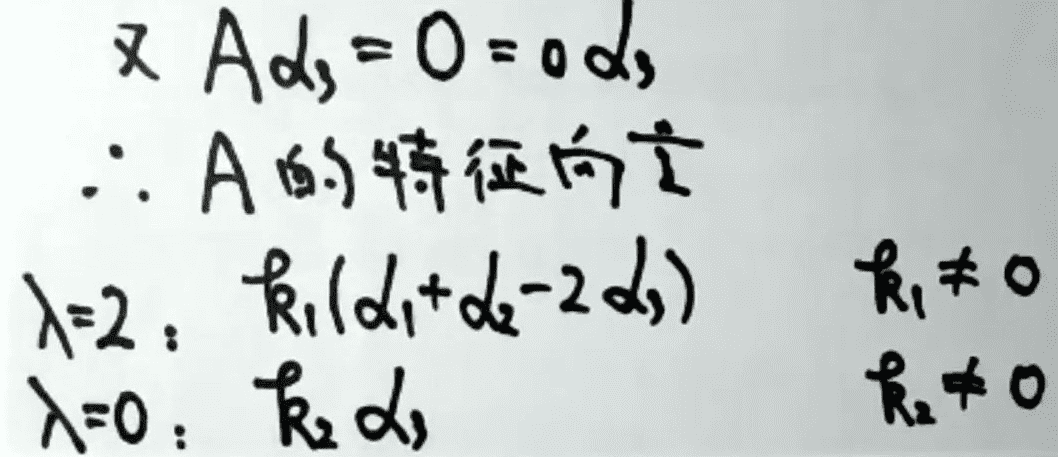 又 Aα₃ = 0 = 0α₃
∴ A的特征向量
λ=2： k₁(α₁+α₂-2α₃) k₁≠0
λ=0： k₂α₃ k₂≠0